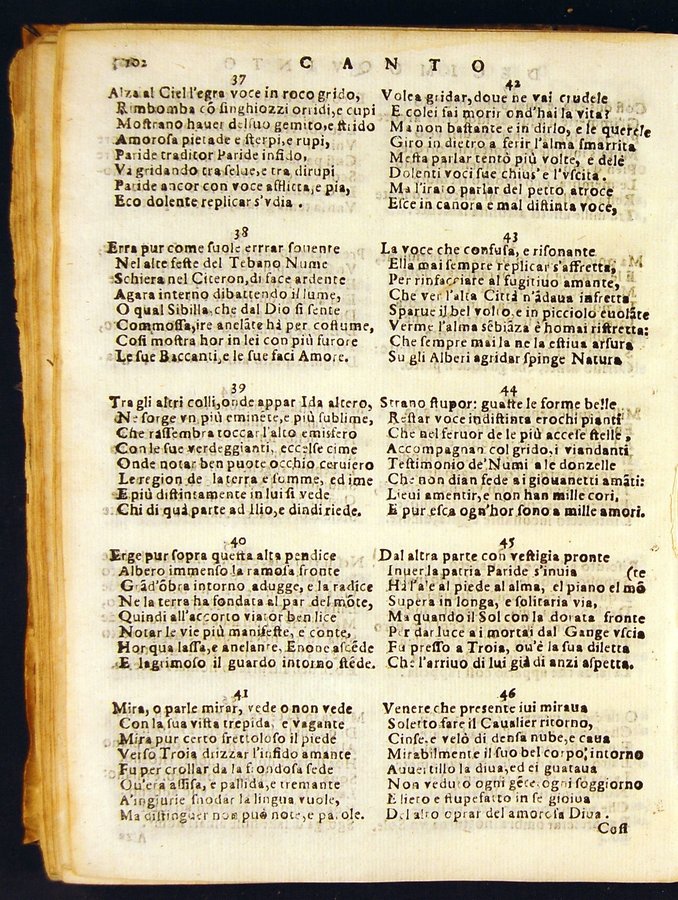 102
CANTO
37
Alza al Ciel l'egra voce in roco grido,
Rimbomba cõ singhiozzi orridi, e cupi
Mostrano hauer del suo gemito, e strido
Amorosa pietade e sterpi, e rupi,
Paride traditor Paride infido,
Va gridando tra selue, e tra dirupi
Paride ancor con voce afflitta, e pia,
Eco dolente replicar s'vdia.
38
Erra pur come suole errrar souente
Nel alte feste del Tebano Nume
Schiera nel Citeron, di face ardente
Agara interno dibattendo il lume,
O qual Sibilla che dal Dio si sente
Commossa, ire anelãte hà per costume,
Cosi mostra hor in lei con più furore
Le sue Baccanti, e le sue faci Amore.
39
Tra gli altri colli, onde appar Ida altero,
Ne sorge vn più eminẽte, e più sublime,
Che rassembra toccar l'alto emisfero
Con le sue verdeggianti, eccelse cime
Onde notar ben puote occhio ceruiero
Le region de la terra e somme, ed ime
E più distintamente in lui si vede
Chi di quà parte ad Ilio, e dindi riede.
40
Erge pur sopra questa alta pendice
Albero immenso la ramosa fronte
Grãd'õbra intorno adugge, e la radice
Ne la terra hà fondata al par del mõte,
Quindi all'accorto viator ben lice
Notar le vie più manifeste, e conte,
Hor qua lassa, e anelante, Enone ascẽde
E lagrimoso il guardo intorno stẽde.
41
Mira, o parle mirar, vede o non vede
Con la sua vista trepida, e vagante
Mira pur certo frettoloso il piede
Verso Troia drizzar l'infido amante
Fu per crollar da la frondosa sede
Ou'era assisa, e pallida, e tremante
A'ngiurie snodar la lingua vuole,
Ma distinguer non può note, e parole.
42
Volea gridar, doue ne vai crudele
E colei fai morir ond'hai la vita?
Ma non bastante e in dirlo, e le querele
Giro in dietro a ferir l'alma smarrita
Mesta parlar tentò più volte, e dele
Dolenti voci sue chius' e l'vscita.
Ma l'irato parlar del petto atroce
Esce in canora e mal distinta voce,
43
La voce che confusa, e risonante
Ella mai sempre replicar s'affretta,
Per rinfacciare al fugitiuo amante,
Che ver l'alta Città n'ãdaua infretta
Sparue il bel volto e in picciolo e uolãte
Verme l'alma sẽbiãza è homai ristretta:
Che sempre mai la ne la estiua arsura
Su gli Alberi agridar spinge Natura
44
Strano stupor: guaste le forme belle
Restar voce indistinta erochi pianti
Che nel feruor de le più accese stelle,
Accompagnan col grido, i viandanti
Testimonio de' Numi a le donzelle
Che non dian fede ai giouanetti amãti:
Lieui amentir, e non han mille cori,
E pur esca ogn'hor sono a mille amori.
45
Dal altra parte con vestigia pronte
Inuer la patria Paride s'inuia (te
Hà l'ale al piede al alma, el piano el mõ
Supera in longa, e solitaria via,
Ma quando il Sol con la dorata fronte
Per dar luce ai mortai dal Gange vscia
Fu presso a Troia, ou'è la sua diletta
Che l'arriuo di lui già di anzi aspetta.
46
Venere che presente iui miraua
Soletto fare il Caualier ritorno,
Cinse, e velò di densa nube, e caua
Mirabilmente il suo bel corpo, intorno
Auuertillo la diua, ed ei guataua
Non veduto ogni gẽte, ogni soggiorno
E lieto e stupefatto in se gioiua
Del alto oprar del amorosa Diua.
Cosi